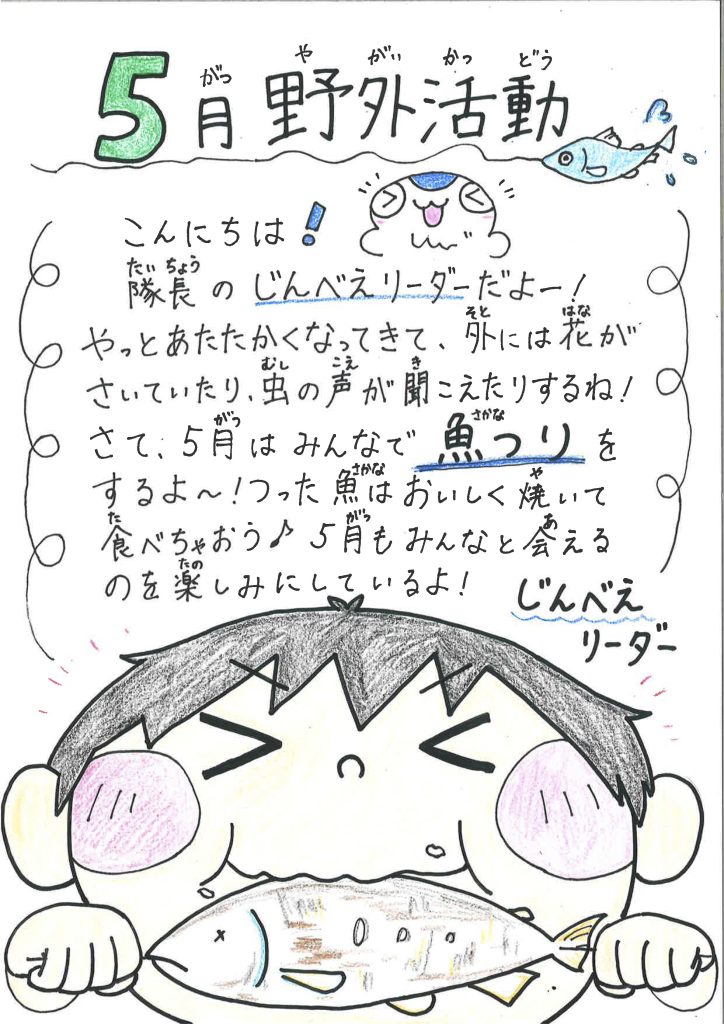 5月野外活動
こんにちは!
隊長のじんべえリーダーだよー!
やっとあたたかくなってきて、外には花が
さいていたり、虫の声が聞こえたりするね!
さて、5月はみんなで魚つりを
するよ〜!つった魚はおいしく焼いて
食べちゃおう♪5月もみんなと会える
のを楽しみにしているよ!
じんべえ
リーダー